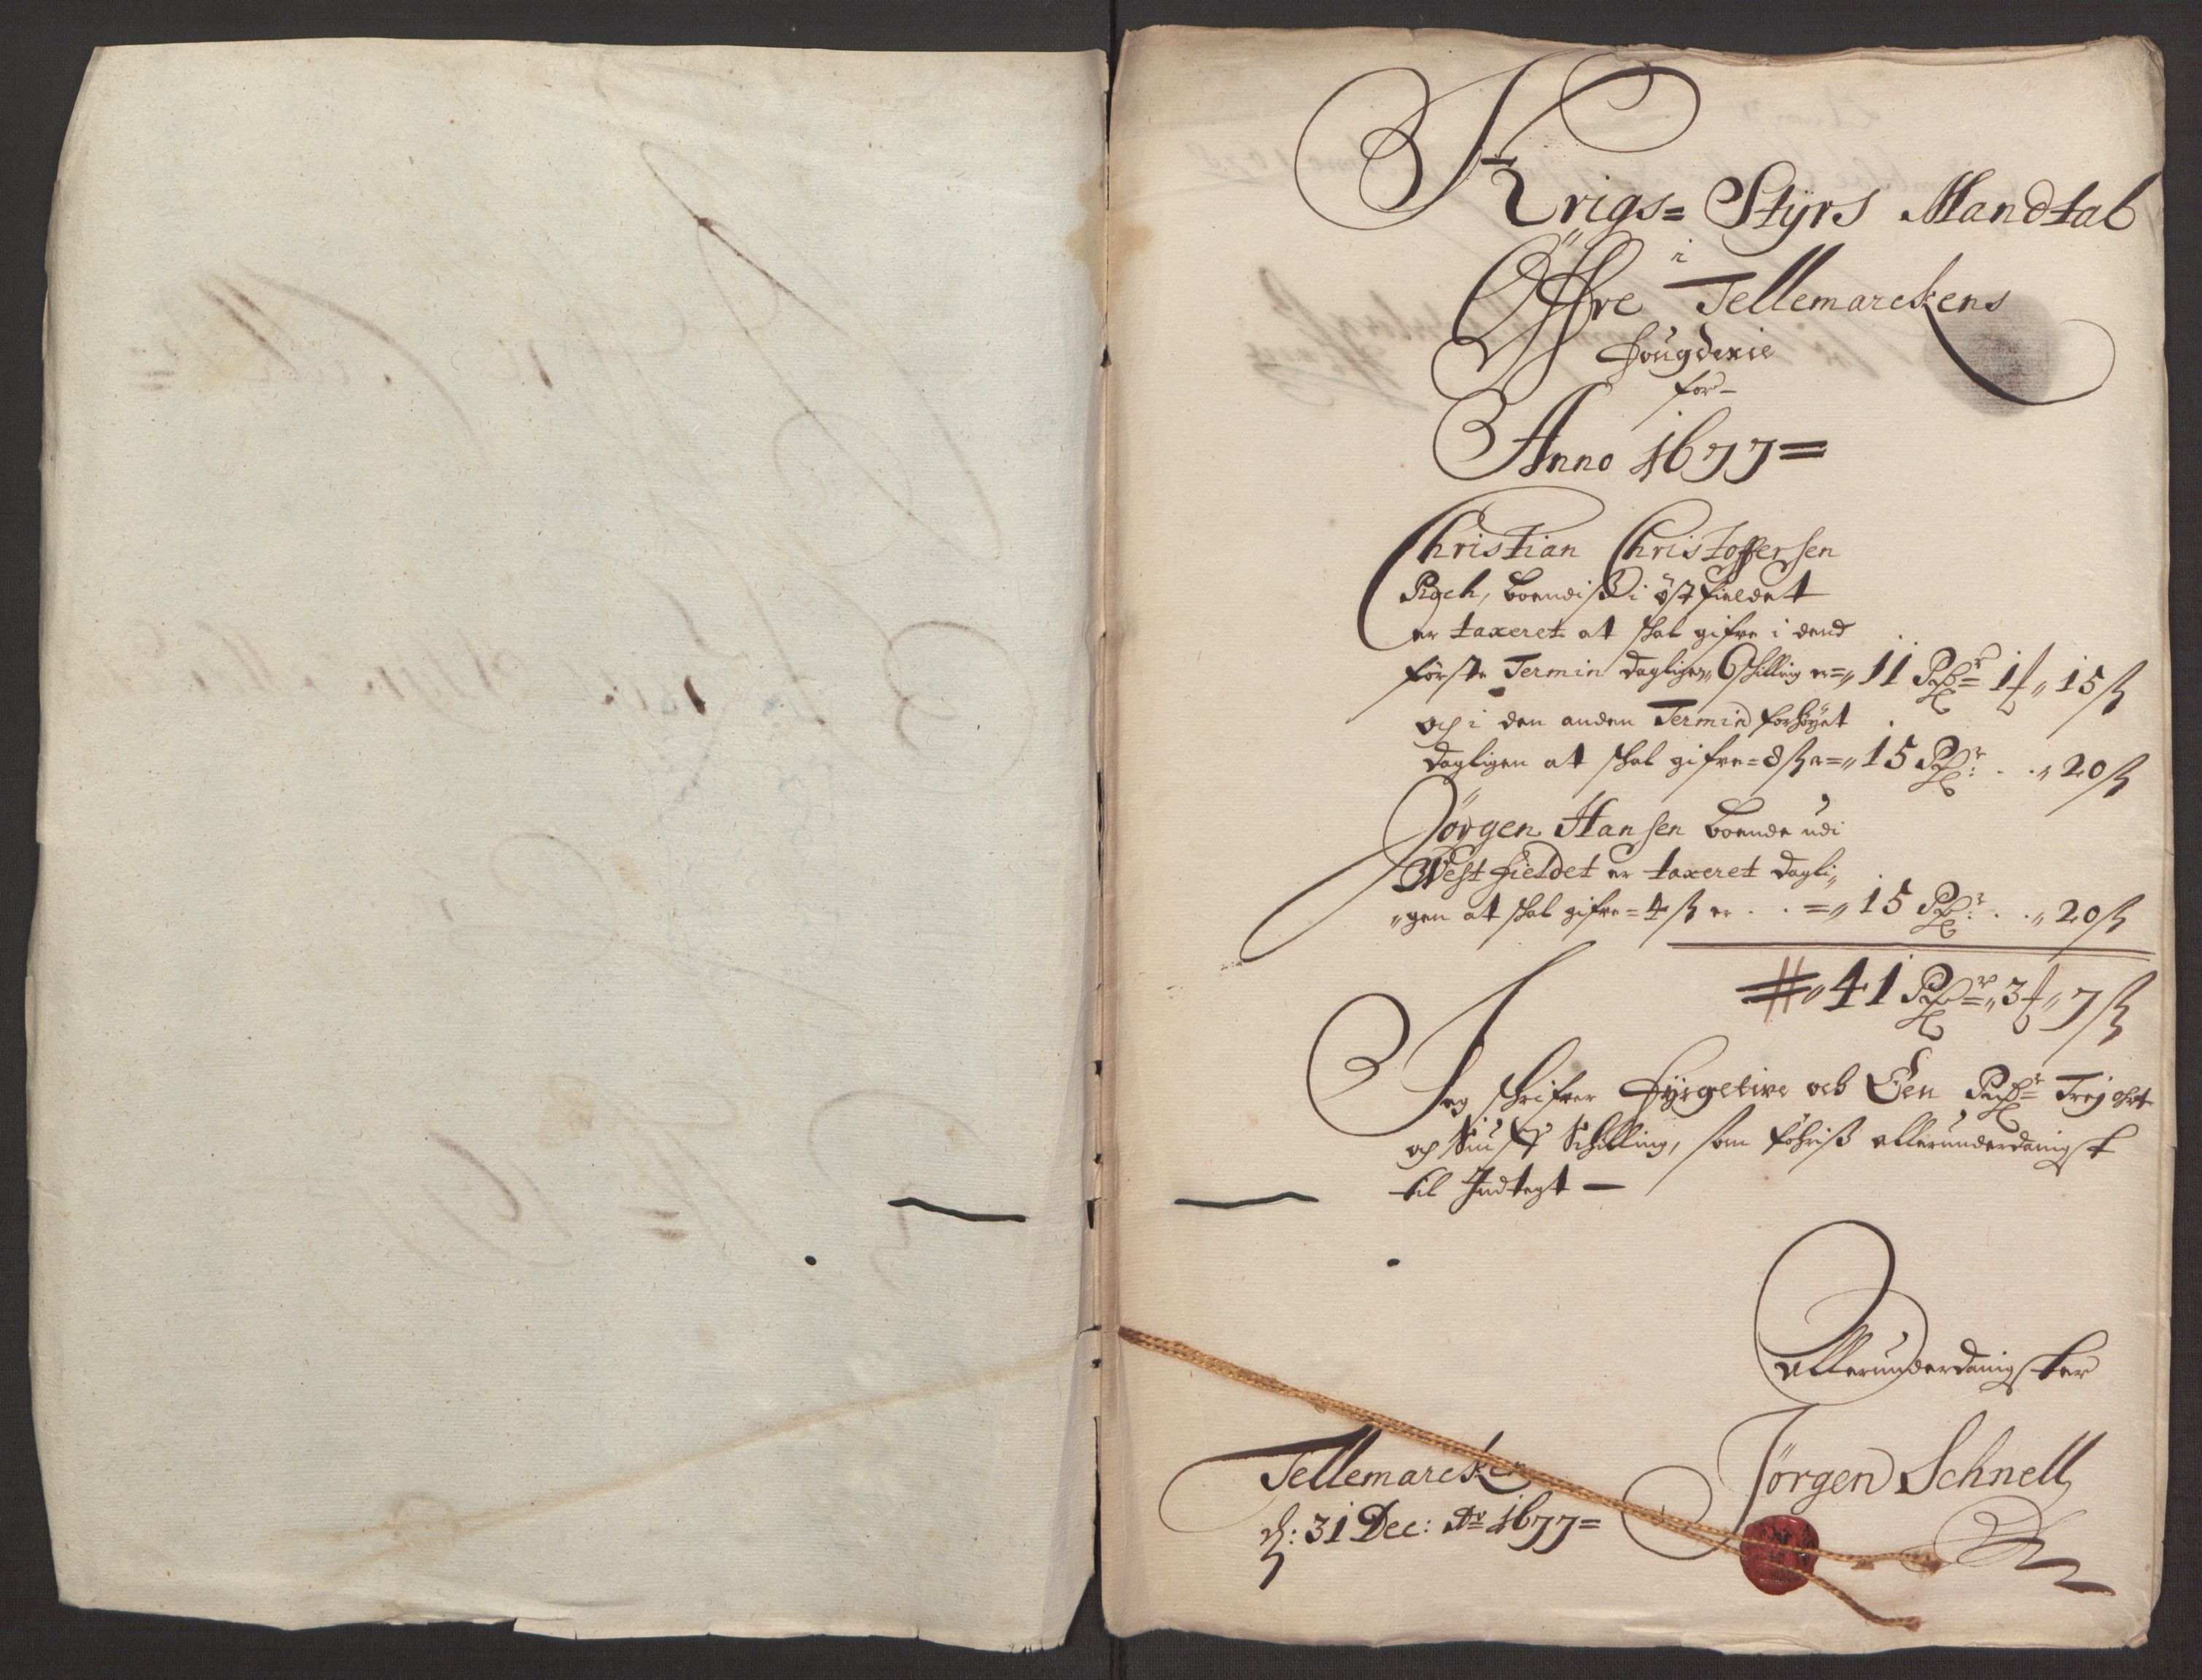 Krigs= Stÿrs Mandtal
i
Öffre Tellemarckens
fougderie
for
Anno 1677=
Christian Christoffersen
boendis i östfieldet
er taxeret at skal gifve i dend
förste Termin dagligen 6 skilling er=„ 11 Rdr= 1 ort„ 15 ß
och i den anden Termin forhöyet
dagligen at skal gifve= 8 ß er=„ 15 Rdr: . . „ 20 ß
Jörgen Hansen boende udi
Westfieldet er taxeret dagli„
„gen at skal gifve= 4 ß er . . =„ 15 Rdr: . . „ 20 ß
„ 41 Rdr=„ 3 ort„ 7 ß
Jeg skrifver Fyrgetive och Een Rdr= Trej ort
och Siuf Schilling, som föhris allerunderdanigst
til Indtegt —
Allerunderdanigster
Tellemarcken
Jörgen Schnell
d: 31 Dec: Ao 1677=